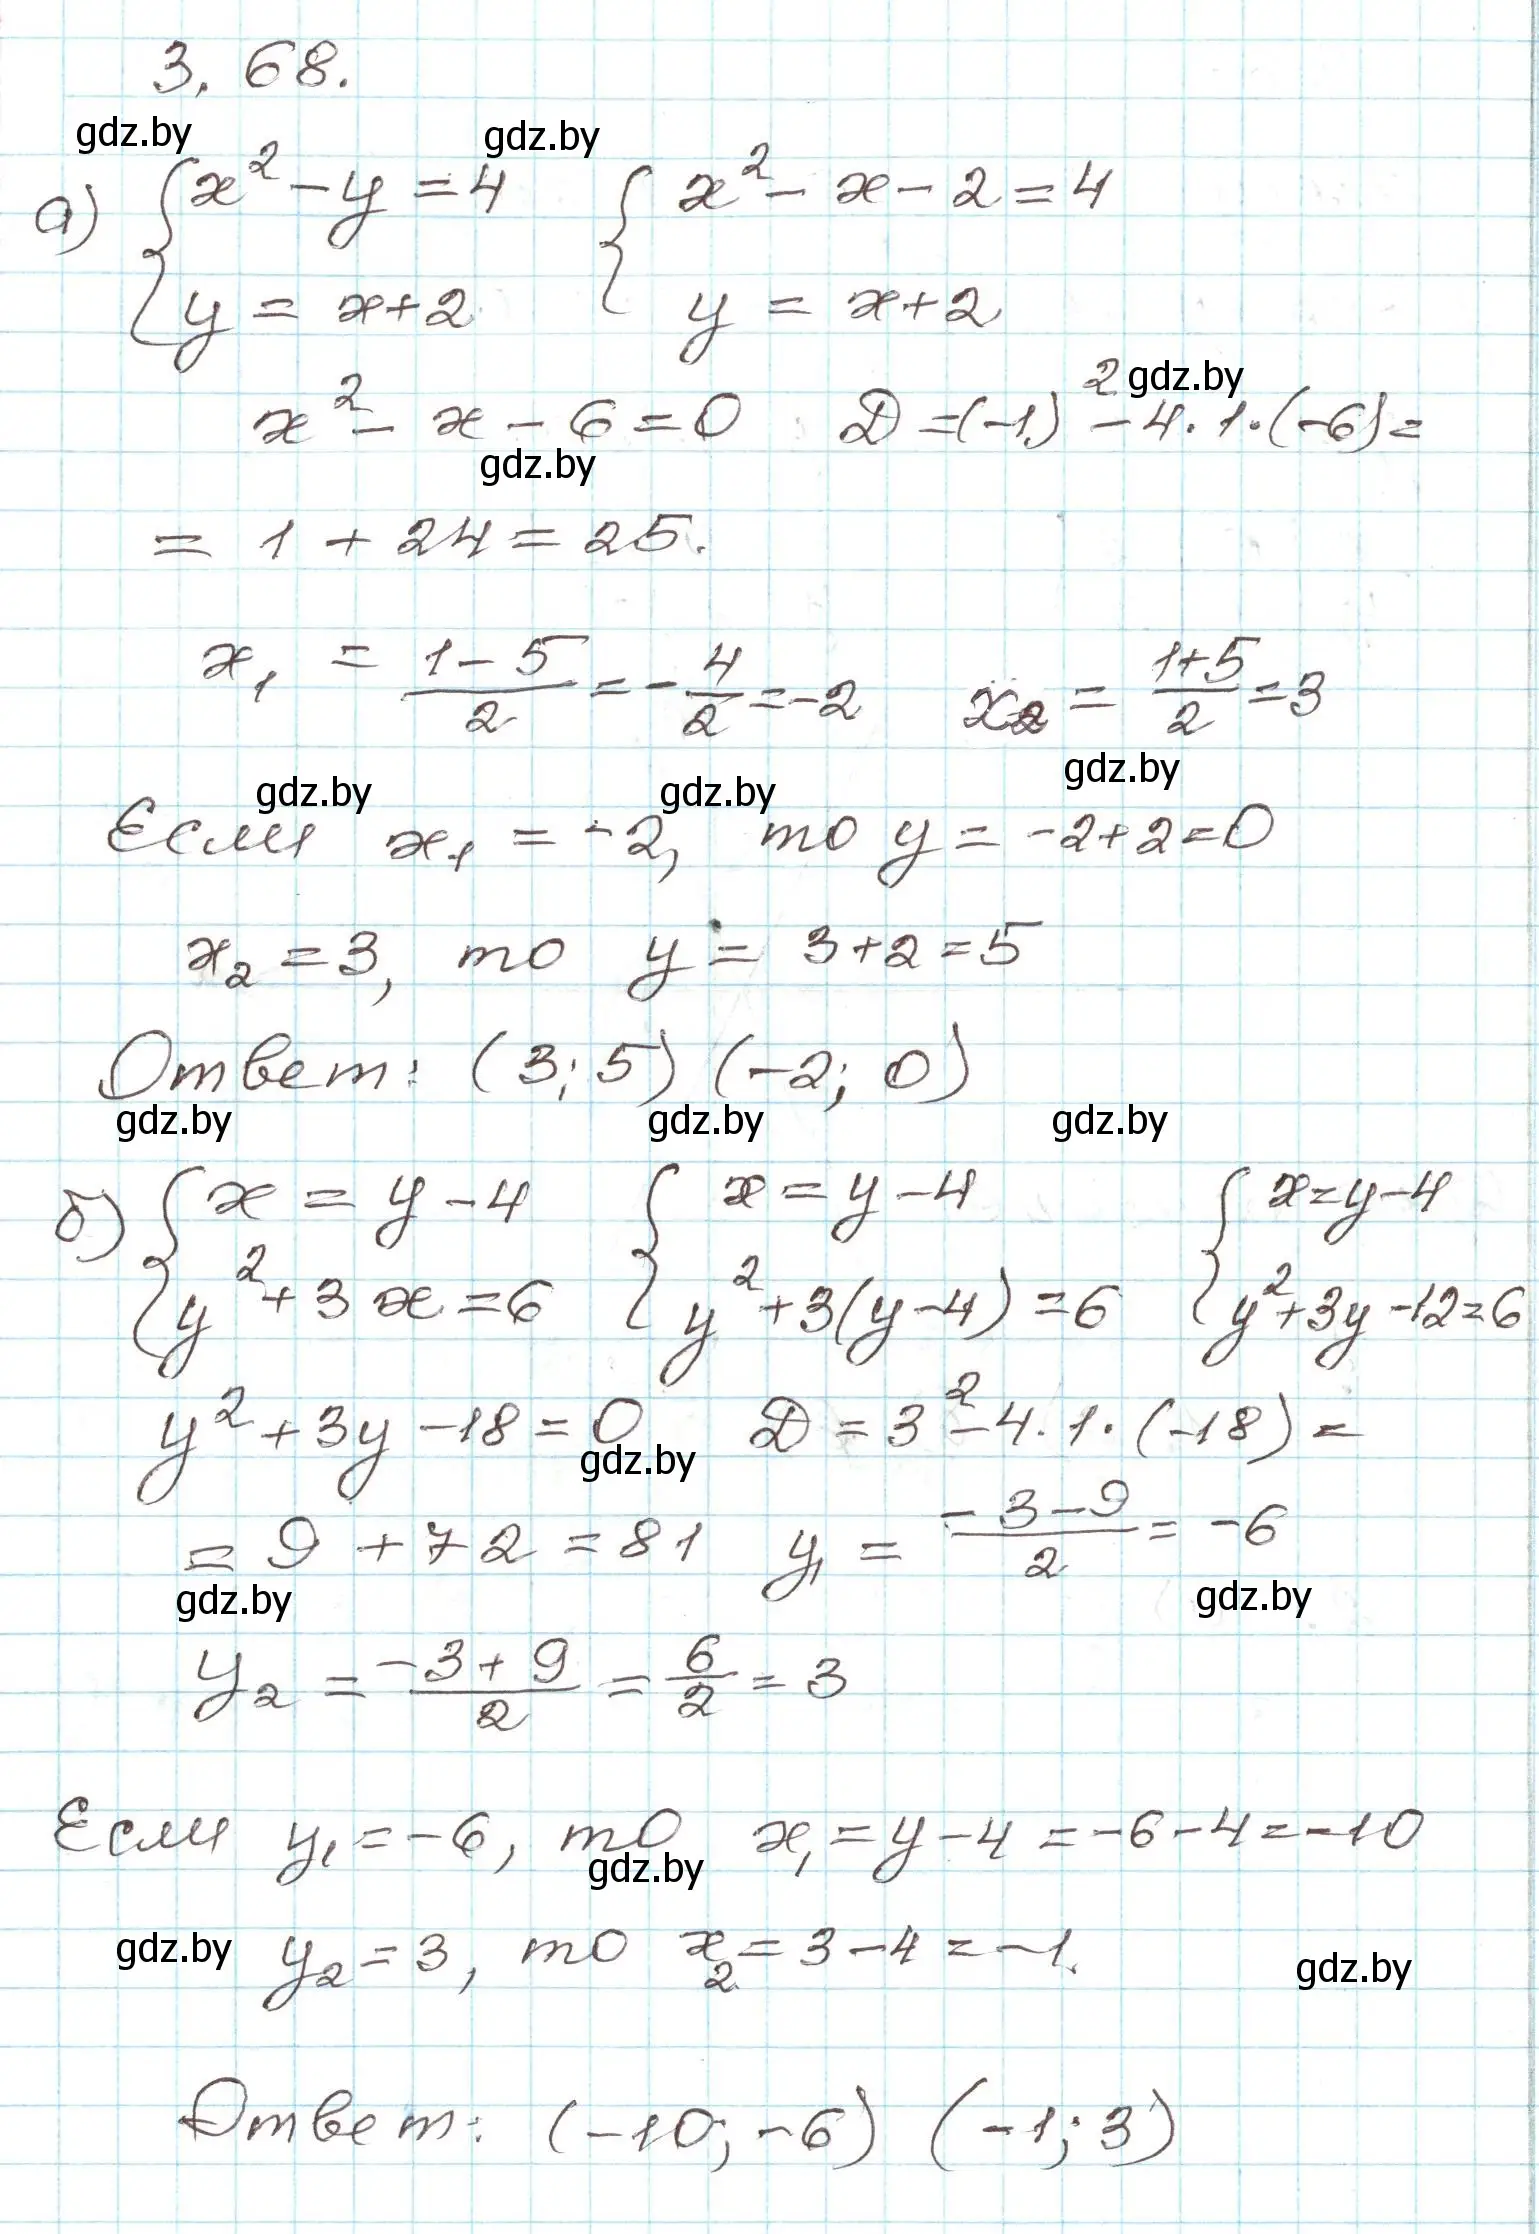 3.68.
gdz.by gdz.by
а) { x² - y = 4 { x² - x - 2 = 4
y = x+2 y = x+2
x² - x - 6 = 0 D = (-1)² - 4·1·(-6) = gdz.by
gdz.by
= 1 + 24 = 25.
x₁ = (1-5)/2 = -4/2 = -2 x₂ = (1+5)/2 = 3
gdz.by gdz.by gdz.by
Если x₁ = -2, то y = -2+2=0
x₂ = 3, то y = 3+2=5
Ответ: (3; 5) (-2; 0)
gdz.by gdz.by gdz.by
б) { x = y - 4 { x = y - 4 { x=y-4
y² + 3x = 6 y² + 3(y-4) = 6 y²+3y-12=6
y² + 3y - 18 = 0 D = 3² - 4·1·(-18) =
gdz.by
= 9 + 72 = 81 y₁ = (-3-9)/2 = -6
gdz.by gdz.by
y₂ = (-3+9)/2 = 6/2 = 3
Если y₁ = -6, то x₁ = y - 4 = -6-4 = -10
gdz.by
gdz.by y₂ = 3, то x₂ = 3-4 = -1. gdz.by
Ответ: (-10; -6) (-1; 3)